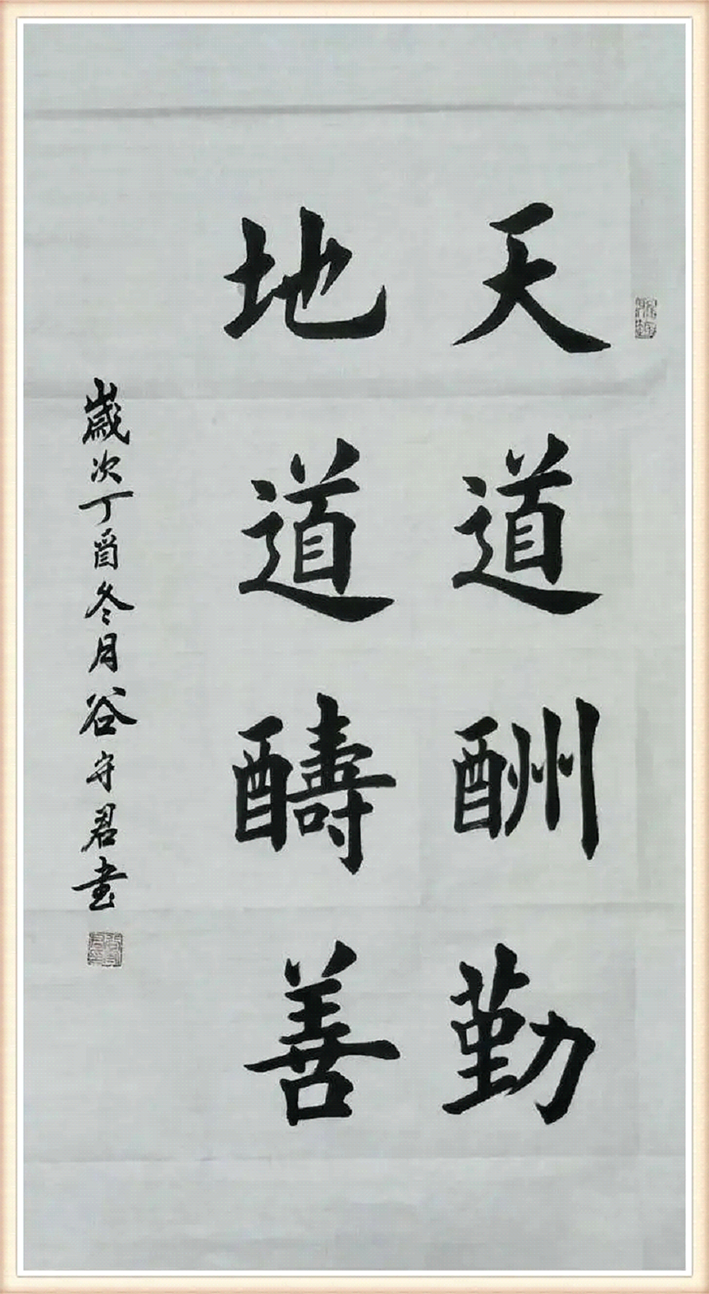 天道酬勤
地道醻善
歲次丁酉冬月谷守君書